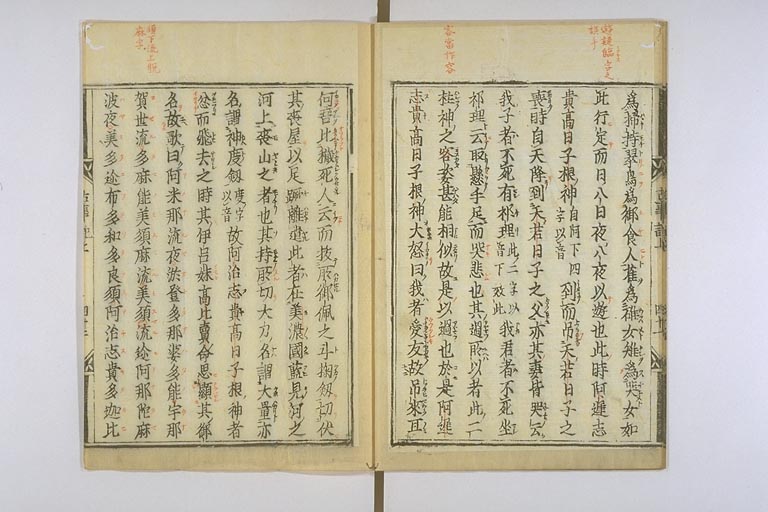 為掃持翠鳥為御食人雀為碓女雉為哭女如
此行定而日八日夜八夜以遊也此時阿遲志
貴高日子根神自阿下四字以音到而吊天若日子之
喪時自天降到天若日子之父亦其妻皆哭云
我子者不死有祁理此二字以音下效此我君者不死坐
祁理云取懸手足而哭悲也其過所以者此二
柱神之容姿甚能相似故是以過也於是阿遲
志貴高日子根神大怒曰我者愛友故吊來耳
何吾此穢死人云而拔所御佩之十掬釼切伏
其喪屋以足蹶離遣此者在美濃國藍見河之
河上喪山之者也其持所切大刀名謂大量亦
名謂神度釼度字以音故阿治志貴高日子根神者
忿而飛去之時其伊呂妹高比賣命思顯其御
名故歌曰阿米那流夜淤登多那婆多能宇那
賀世流多麻能美須麻流美須流邇阿那陀麻
波夜美多邇布多和多良須阿治志貴多迦比
古事記上
客當作容